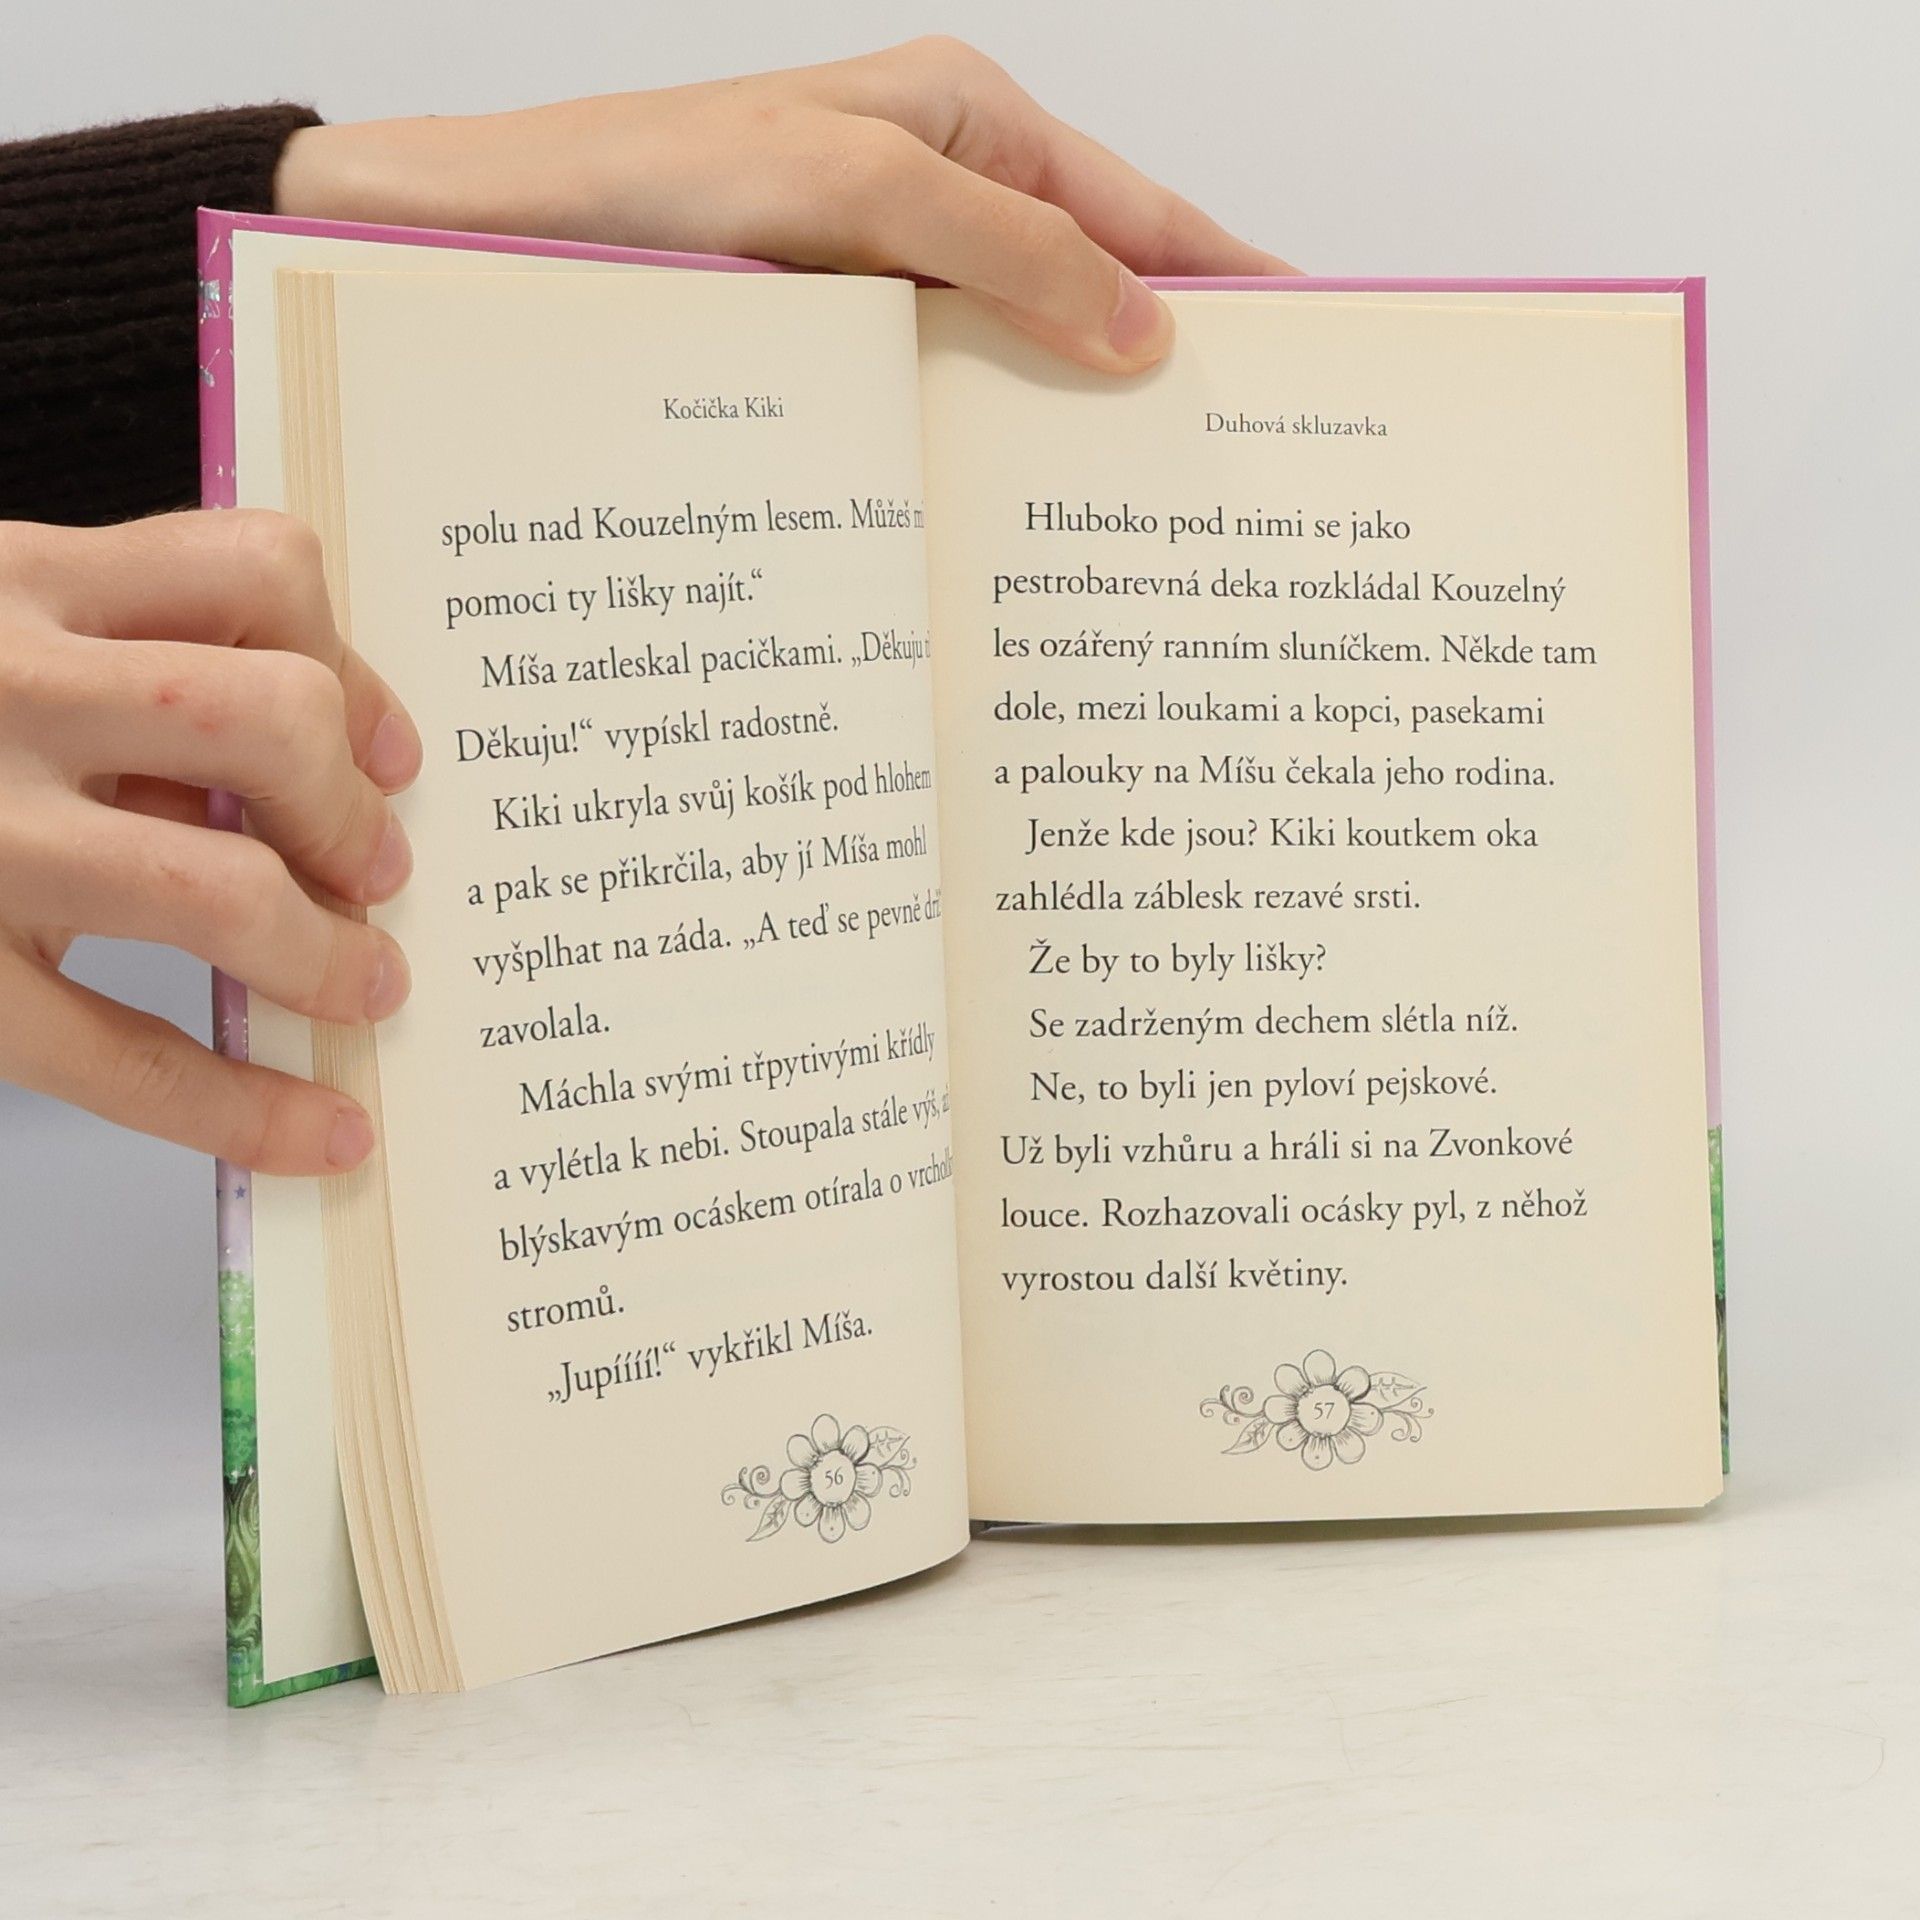 Kočička Kiki
spolu nad Kouzelným lesem. Můžeš
pomoci ty lišky najít.“
Míša zatleskal pacičkami. „Děkuju
Děkuju!“ vypískl radostně.
Kiki ukryla svůj košík pod hlohem
a pak se přikrčila, aby jí Míša mohl
vyšplhat na záda. „A teď se pevně
zavolala.
Máchla svými třpytivými křídly
a vylétla k nebi. Stoupala stále výš,
blýskavým ocáskem otírala o
stromů.
„Jupíííí!“ vykřikl Míša.
56
Duhová skluzavka
Hluboko pod nimi se jako
pestrobarevná deka rozkládal Kouzelný
les ozářený ranním sluníčkem. Někde tam
dole, mezi loukami a kopci, pasekami
a palouky na Míšu čekala jeho rodina.
Jenže kde jsou? Kiki koutkem oka
zahlédla záblesk rezavé srsti.
Že by to byly lišky?
Se zadrženým dechem slétla níž.
Ne, to byli jen pyloví pejskové.
Už byli vzhůru a hráli si na Zvonkové
louce. Rozhazovali ocásky pyl, z něhož
vyrostou další květiny.
57